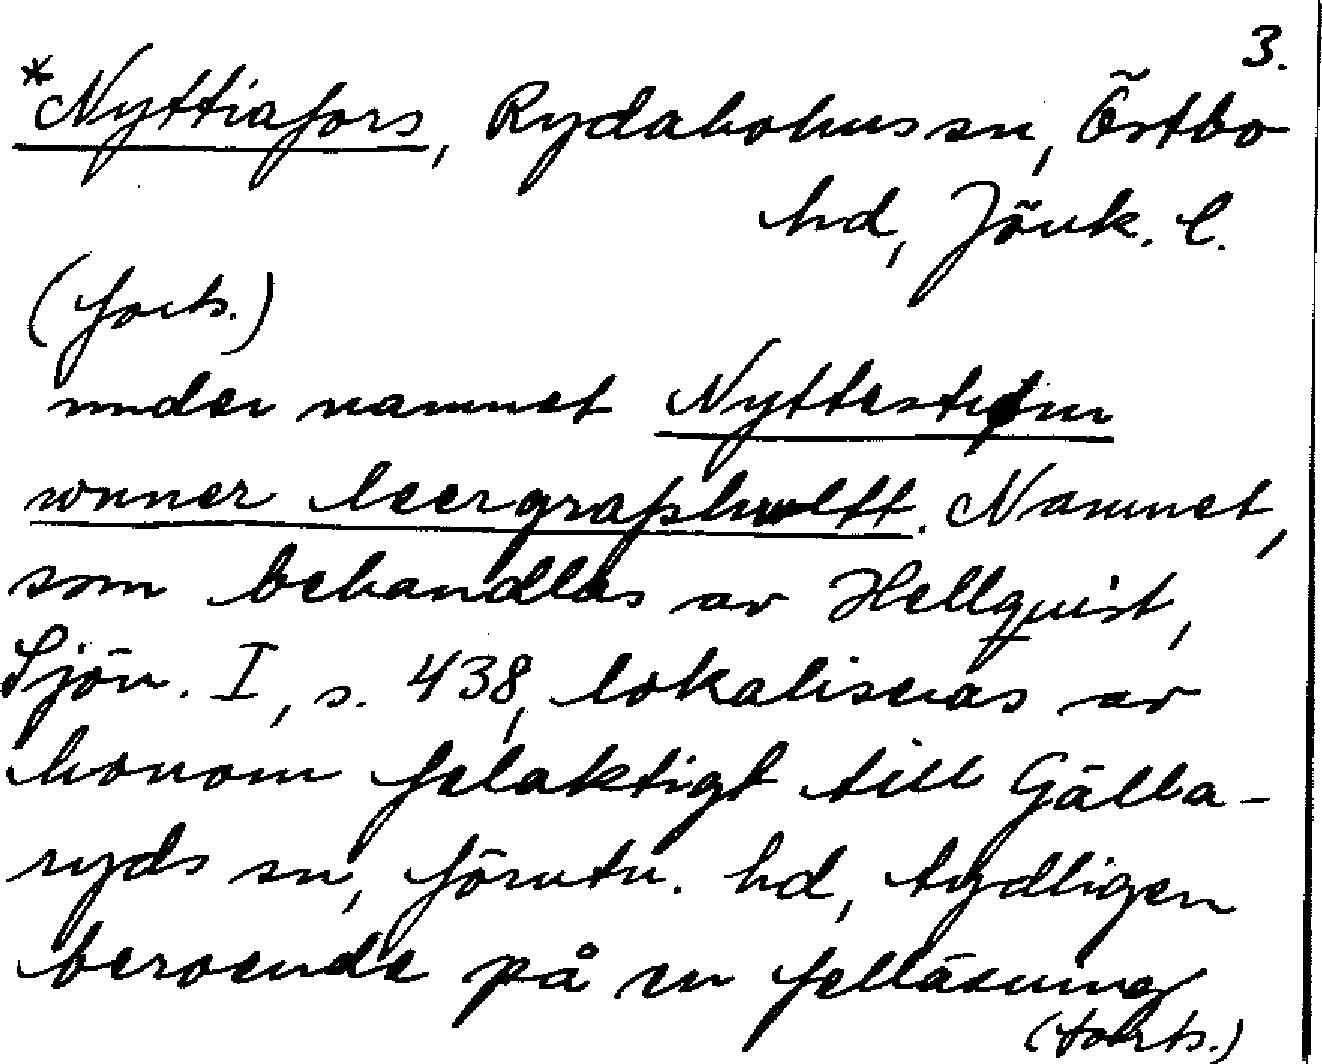 3.
*Nyttiafors, Rydaholms sn, Östbo
hd, Jönk. l.
(forts.)
under namnet Nyttestrøm
wnner leergraphwltt. Namnet,
som behandlas av Hellquist,
Sjön. I, s. 438, lokaliseras av
honom felaktigt till Gälla-
ryds sn, förutn. hd, tydligen
beroende på en felläsning
(forts.)